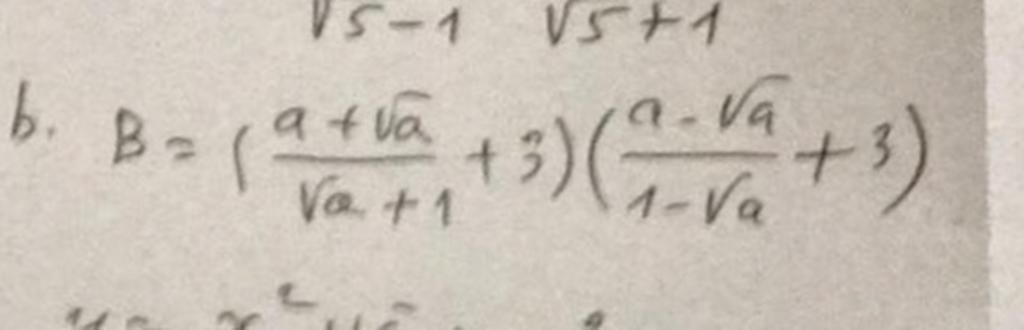 √5-1 √5+1
b. B = ( (a+√a)/(√a+1) + 3)( (a-√a)/(1-√a) + 3)